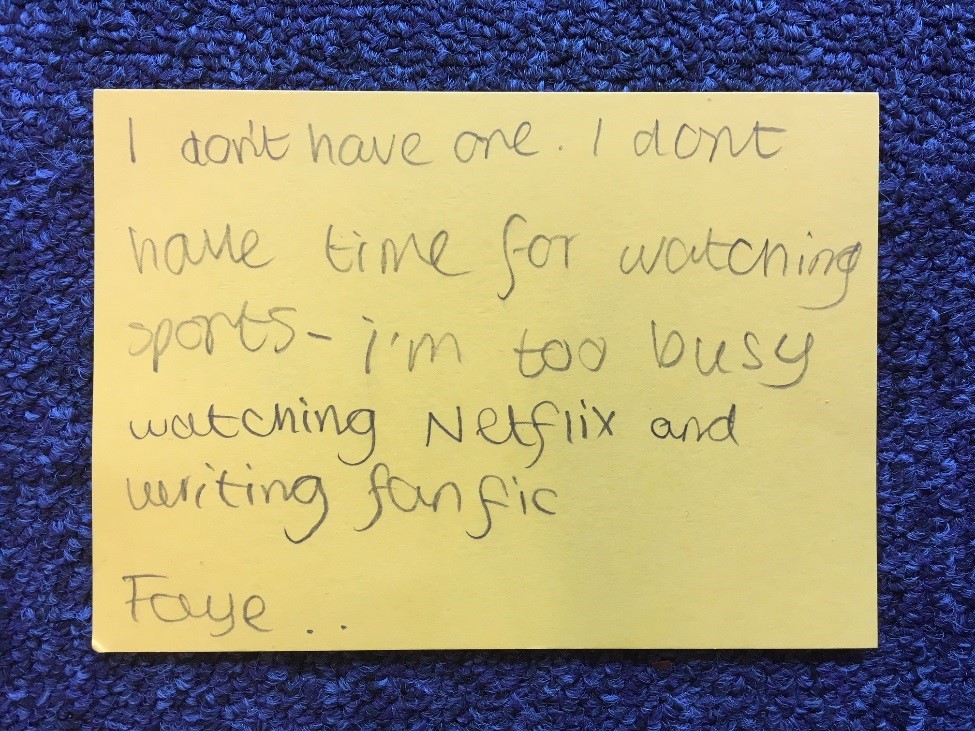 I don't have one. I dont
have time for watching
sports - i'm too busy
watching Netflix and
writing fanfic
Faye ..